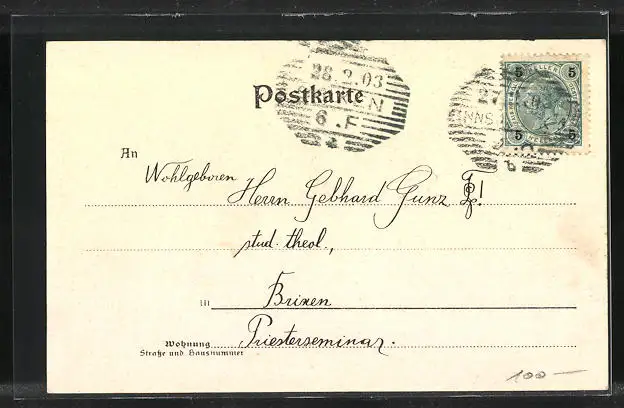 28.2.03
Postkarte
N
6.F
5 HELLER 5
27
NNS
5 5
An
Wohlgeboren
Herrn Gebhard Gunz
stud. theol.,
in Brixen
Wohnung Priesterseminar.
Straße und Hausnummer
100 —